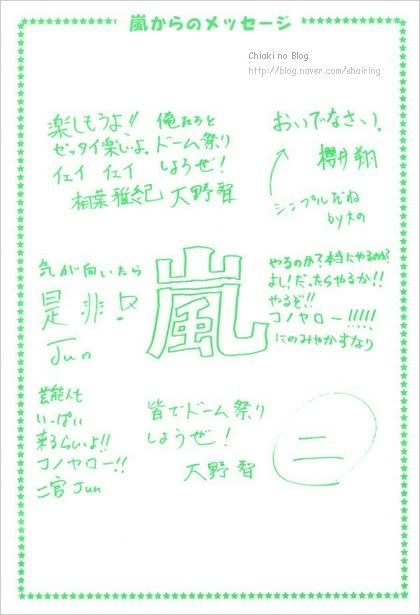 嵐からのメッセージ
Chiaki no Blog
http://blog.naver.com/shairing
楽しもうよ!!
ゼッタイ楽しいよ。
イェイ イェイ
相葉雅紀
俺たちと
ドーム祭り
しようぜ!
大野智
おいでなさい。
櫻井翔
シンプルだね
by大の
気が向いたら
是非只
Jun
嵐
やるのか?本当にやるのか?
よし!だったらやるか!!
やるぞ!!
コノヤロー!!!!!
にのみやかずなり
芸能人も
いっぱい
来るらしいよ!!
コノヤロー!!
二宮 Jun
皆でドーム祭り
しようぜ!
大野智
二